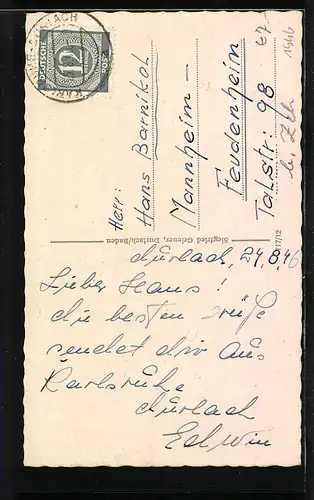 KARLSRUHE-DURLACH
DEUTSCHE POST
12
Herr:
Hans Barnikol
Mannheim –
Feudenheim
Talstr: 98
1946
Siegfried Griener, Durlach/Baden
17/12
Durlach, 24.8.46
Lieber Hans!
die besten Grüße
sendet dir aus
Karlsruhe
durlach
Edwin